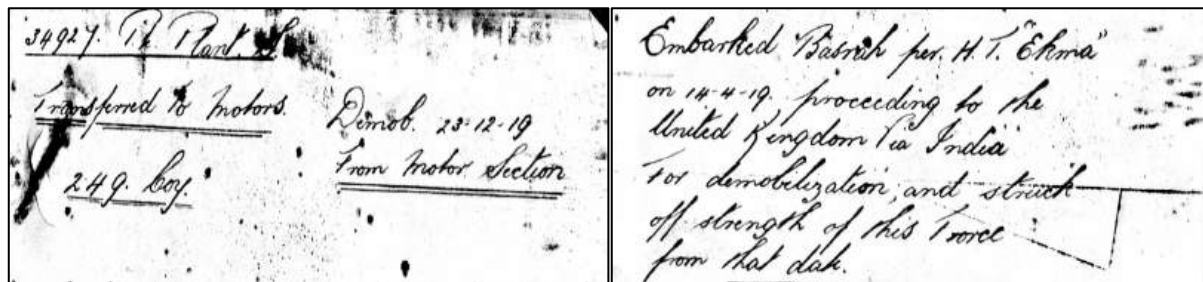 34927. Pte Plant
Transferred to Motors.
249. Coy.
Demob. 23-12-19
From Motor Section
Embarked Basrah per. H.T. "Ekma"
on 14-4-19. proceeding to the
United Kingdom Via India
For demobilization, and struck
off strength of this Force
from that date.